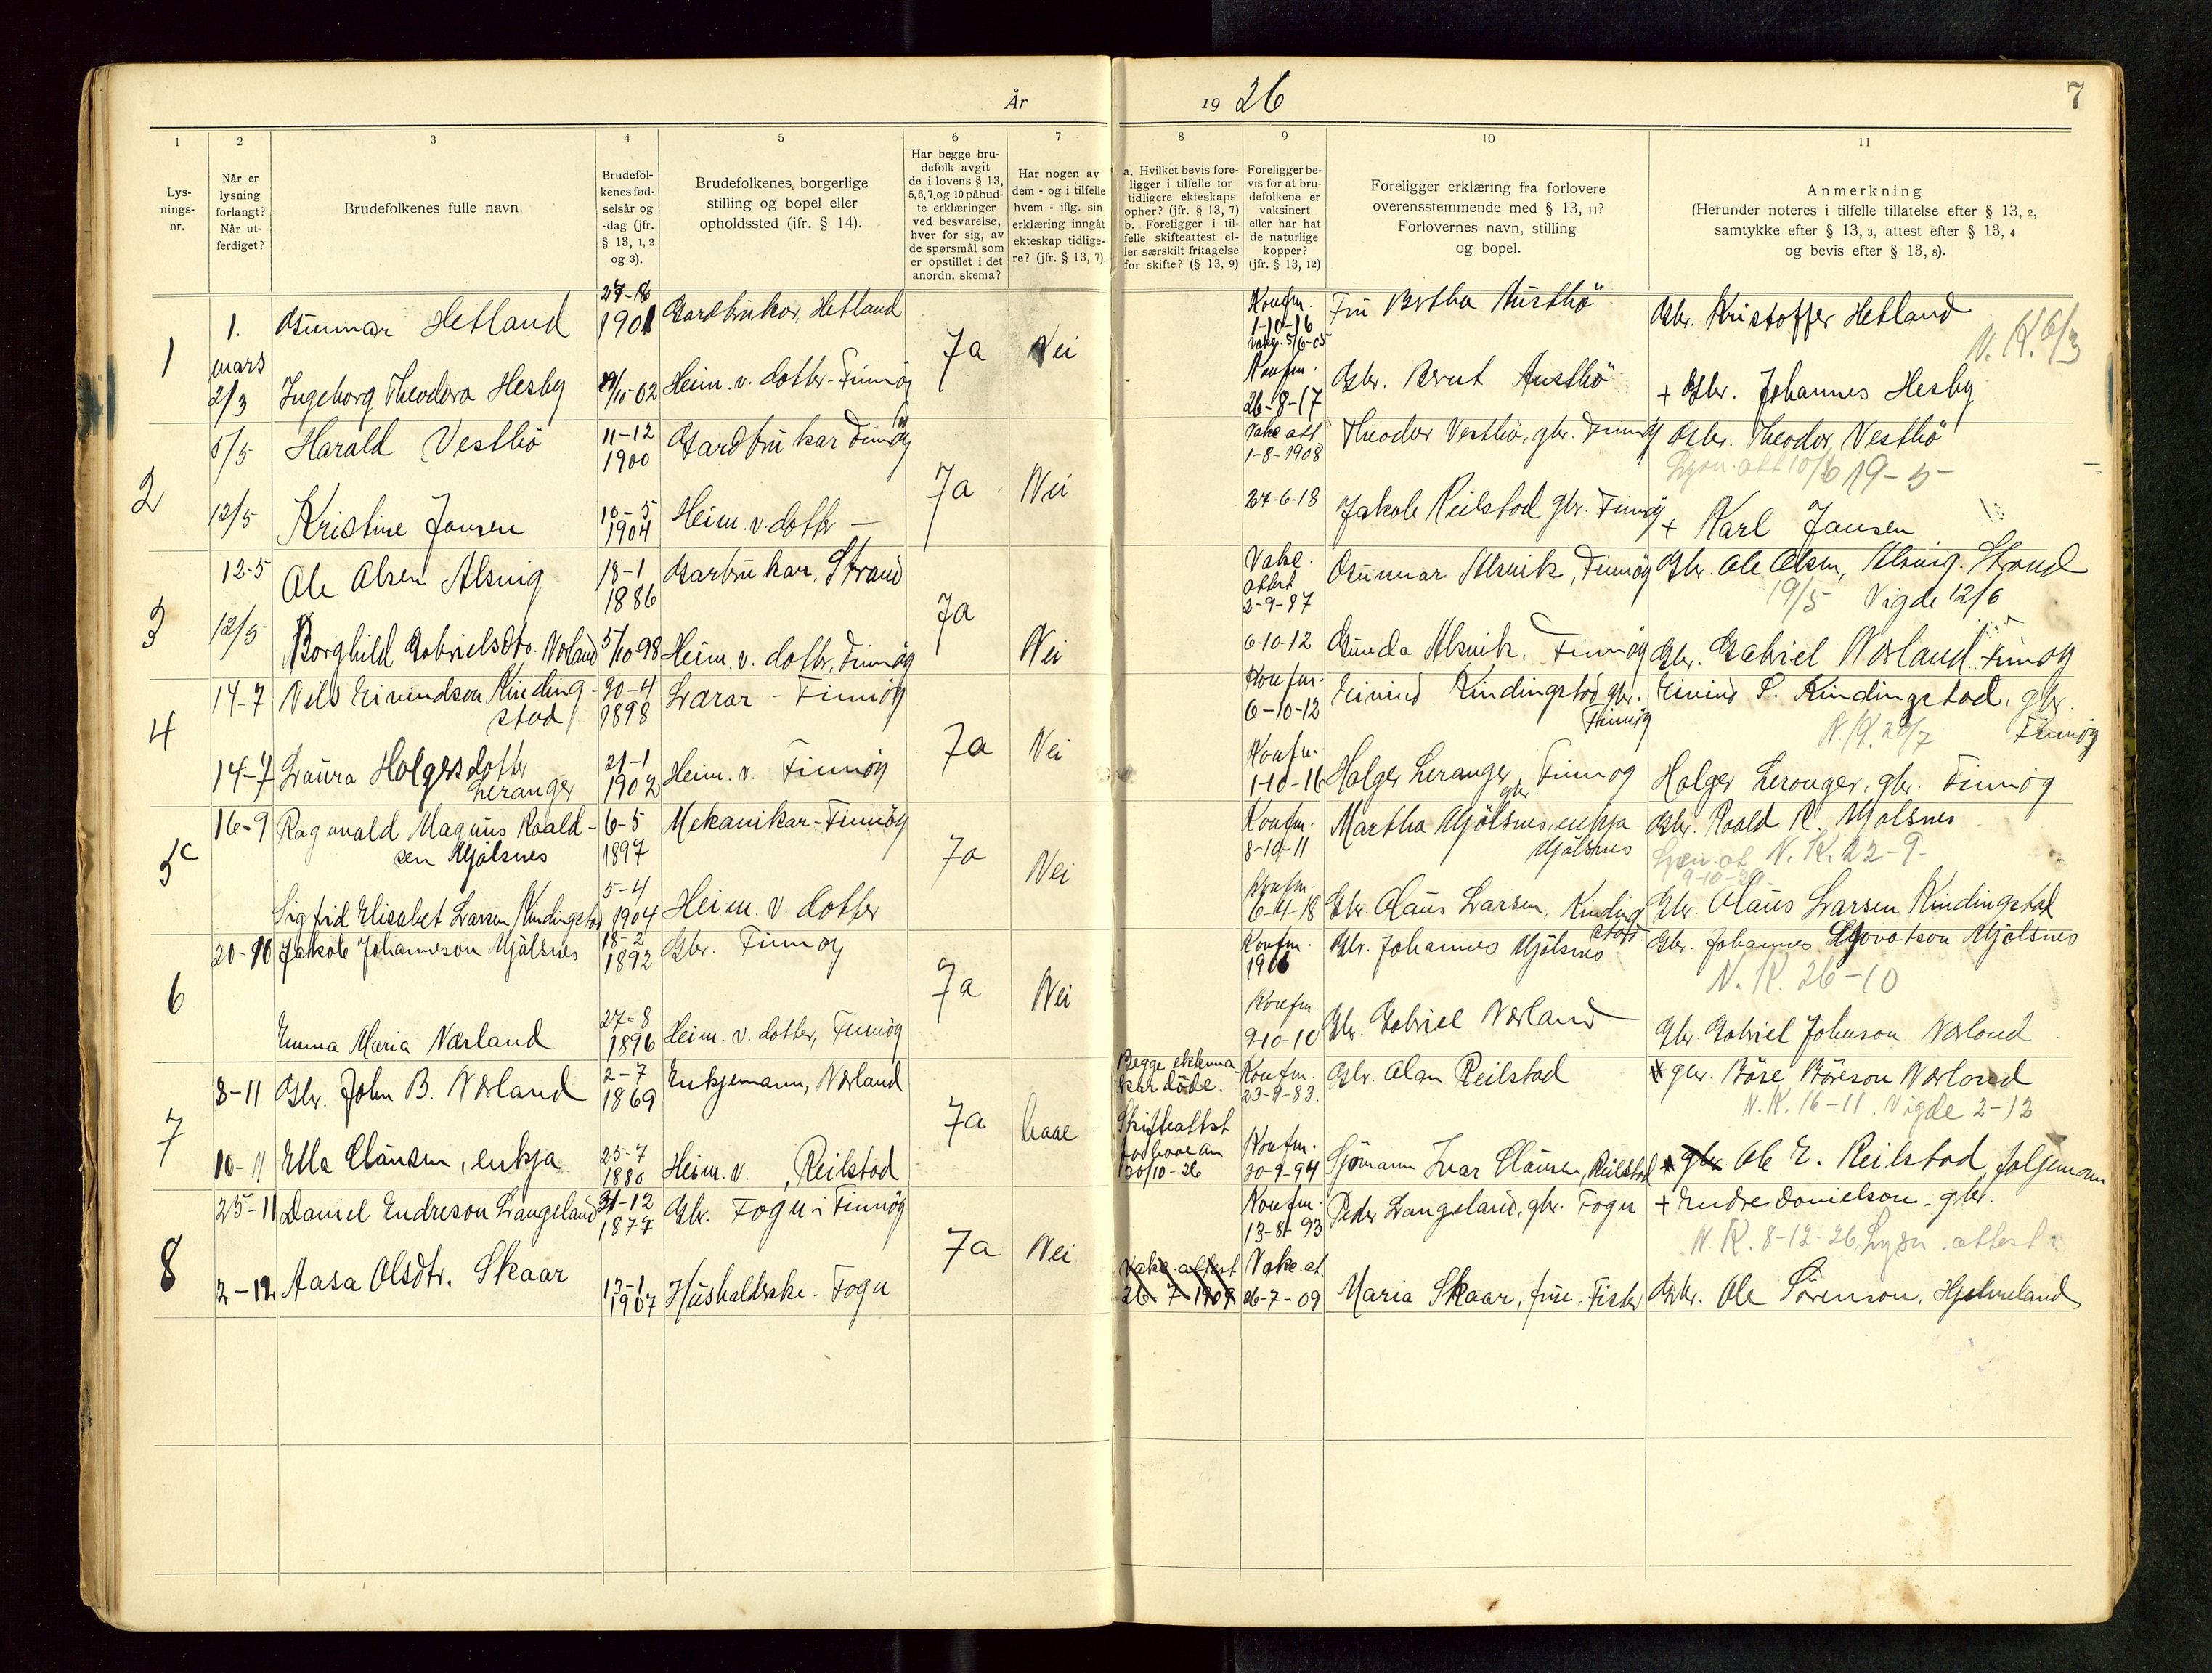 År
1926
7
1
2
3
4
5
6
7
8
9
10
11
Lys-
nings-
nr.
Når er
lysning
forlangt?
Når ut-
ferdiget?
Brudefolkenes fulle navn.
Brudefol-
kenes fød-
selsår og
-dag (jfr.
§ 13, 1, 2
og 3).
Brudefolkenes borgerlige
stilling og bopel eller
opholdssted (jfr. § 14).
Har begge bru-
defolk avgit
de i lovens § 13,
5,6,7,og 10 påbud-
te erklæringer
ved besvarelse,
hver for sig, av
de spørsmål som
er opstillet i det
anordn. skema?
Har nogen av
dem - og i tilfelle
hvem - iflg. sin
erklæring inngåt
ekteskap tidlige-
re? (jfr. § 13, 7).
a. Hvilket bevis fore-
ligger i tilfelle for
tidligere ekteskaps
ophør? (jfr. § 13, 7)
b. Foreligger i til-
felle skifteattest el-
ler særskilt fritagelse
for skifte? (§ 13, 9)
Foreligger be-
vis for at bru-
defolkene er
vaksinert
eller har hat
de naturlige
kopper?
(jfr. § 13, 12)
Foreligger erklæring fra forlovere
overensstemmende med § 13, 11?
Forlovernes navn, stilling
og bopel.
Anmerkning
(Herunder noteres i tilfelle tillatelse efter § 13, 2,
samtykke efter § 13, 3, attest efter § 13, 4
og bevis efter § 13, 8).
1
1.
mars
Gunnar Hetland
1901
Gardbrukar, Hetland
7a
Nei
Konfm.
1-10-16
Fru Bertha Austbø
Gbr. Kristoffer Hetland
N. K. 6/3
2/3
Ingeborg Theodora Hesby
Heim. v. dotter - Finnøy
Konfm.
26-8-17
Gbr. Berut Austbø
+ Gbr. Johannes Hesby
2
5/5
Harald Vestbø
11-12
1900
Gardbrukar Finnøy
7a
Nei
Vaks att
1-8-1908
Theodor Vestbø, gbr. Finnøy
Gbr. Theodor Vestbø
19-5
12/5
Kristine Jansen
10-5
1904
Heim. v. dotter —
27-6-18
Jakob Reilstad gbr. Finnøy
+ Karl Jansen
3
12-5
Ole Olsen Alsvig
18-1
1886
Garbrukar, Strand
7a
Nei
Vaks.
attest
2-9-87
Gunnar Alsvik, Finnøy
Gbr. Ole Olsen, Alsvig. Strand
19/5 Vigde 12/6
12/5
Borghild Gabrielsdtr. Nærland
5/10-98
Heim. v. dotter, Finnøy
6-10-12
Gunda Alsvik, Finnøy
Gbr. Gabriel Nærland. Finnøy
4
14-7
Nils Eivindson Kinding-
stad
20-4
1898
Lærar - Finnøy
7a
Nei
Konfm.
6-10-12
Eivind Kindingstad gbr.
Finnøy
Eivind S. Kindingstad, gbr.
Finnøy
14-7
Laura Holgersdotter
Leranger
21-1
1902
Heim. v. Finnøy
Konfm.
1-10-16
Holger Leranger, Finnøy
gbr
Holger Leranger, gbr. Finnøy
5
16-9
Ragnvald Magnus Roald-
sen Mjølsnes
6-5
1897
Mekanikar - Finnøy
7a
Nei
Konfm.
8-10-11
Martha Mjølsnes, enkja
Mjølsnes
Gbr. Roald R. Mjølsnes
N. K. 22-9.
Sigfrid Elisabet Larsen Kindingstad
5-4
1904
Heim. v. dotter
Konfm.
6-4-18
Gbr. Olaus Larsen, Kinding
stad.
Gbr. Olaus Larsen Kindingstad
6
20-10
Jakob Johanneson Mjølsnes
18-2
1892
Gbr. Finnøy
7a
Nei
Konfm.
1906
Gbr. Johannes Mjølsnes
Gbr. Johannes Mjølsnes
N. K. 26-10
Emma Maria Nærland
27-8
1896
Heim. v. dotter, Finnøy
Konfm.
9-10-10
Gbr. Gabriel Nærland
Gbr. Gabriel Johnson Nærland
7
3-11
Gbr. John B. Nærland
2-7
1869
Enkjemann, Nærland
7a
Begge ektema-
kar døde.
Konfm.
23-9-83.
Gbr. Olan Reilstad
+ gbr. Bore Boreson Nærland
N. K. 16-11. Vigde 2-12
10-11
Ella Clausen, enkja
25-7
1880
Heim. v. , Reilstad
Skifteattest
30/10-26
Konfm.
30-9-94
Sjømann Ivar Clausen, Reilstad
+ gbr. Ole E. Reilstad, følgemann
8
25-11
Daniel Endreson Langeland
31-12
1877
Gbr. Fogn i Finnøy
7a
Nei
Konfm.
13-8-93
Peder Langeland, gbr. Fogn
+ Endre Danielson. gbr.
N. K. 8-12-26 Lysn. attest
2-12
Aasa Olsdtr. Skaar
13-1
1907
Husholderske - Fogn
Vaks. attest
26-7-1909
Vaks. at.
26-7-09
Maria Skaar, frue. Fister
Gbr. Ole Sørenson, Hjelmeland